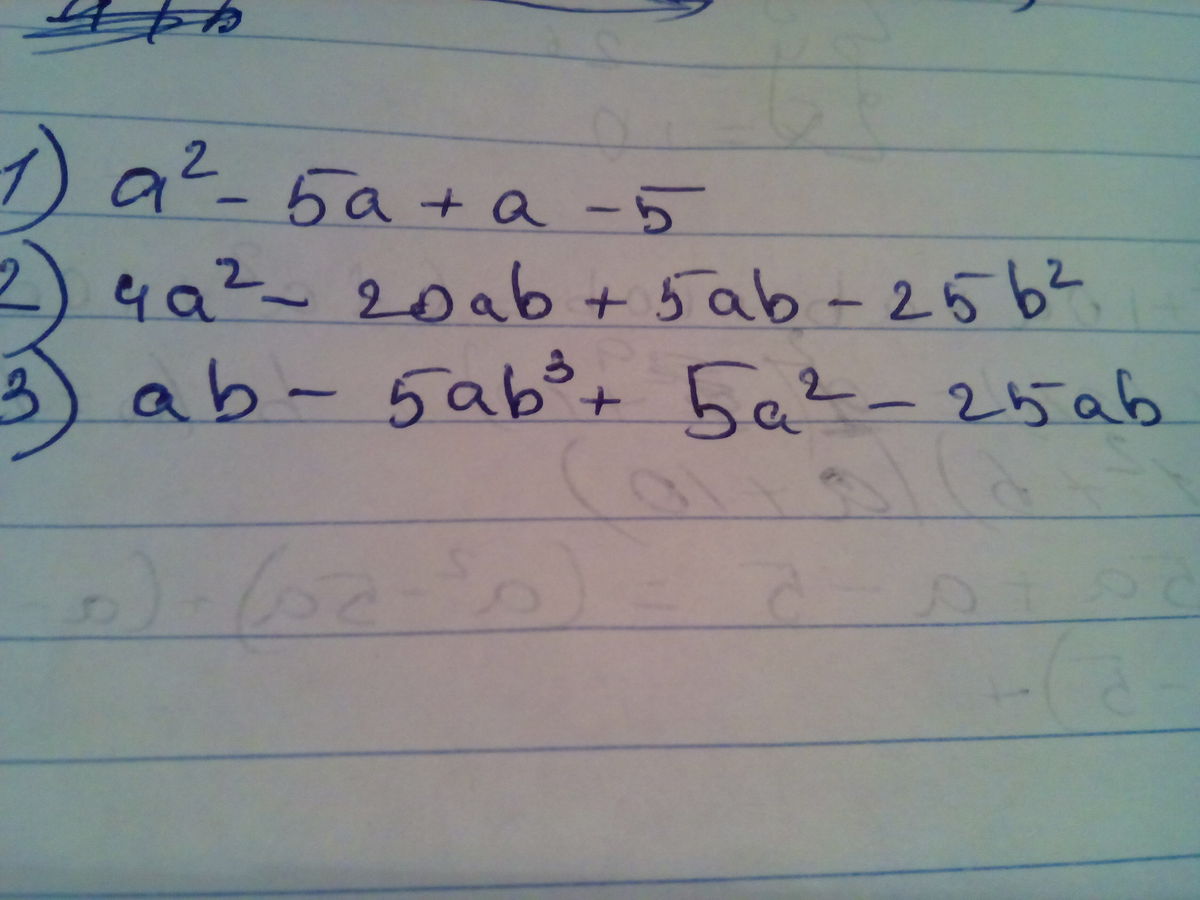 1) a² - 5a + a - 5
2) 4a² - 20ab + 5ab - 25b²
3) ab - 5ab³ + 5a² - 25ab